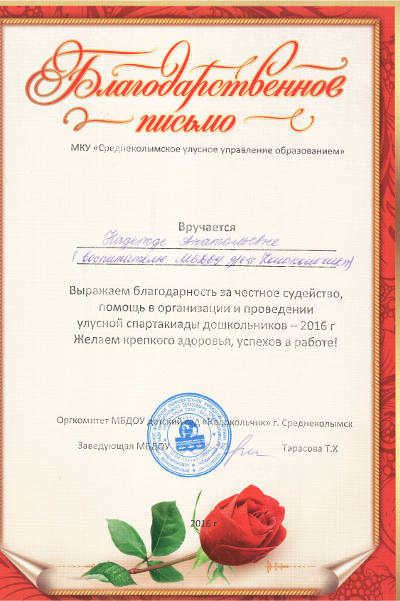 Благодарственное
письмо
МКУ «Среднеколымское улусное управление образованием»
Вручается
Надежде Анатольевне
(воспитателю МБДОУ д/с "Колокольчик")
Выражаем благодарность за честное судейство,
помощь в организации и проведении
улусной спартакиады дошкольников – 2016 г
Желаем крепкого здоровья, успехов в работе!
Оргкомитет МБДОУ детский сад «Колокольчик» г. Среднеколымск
Заведующая МБДОУ Тарасова Т.Х
2016 г